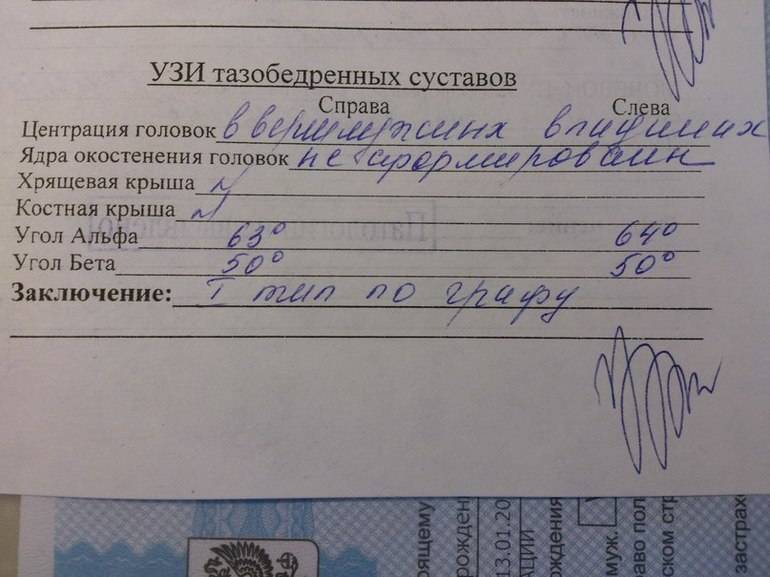 УЗИ тазобедренных суставов
Справа Слева
Центрация головок в вертлужных впадинах
Ядра окостенения головок не сформирован
Хрящевая крыша N
Костная крыша N
Угол Альфа 63° 64°
Угол Бета 50° 50°
Заключение: I тип по графу
13.01.20
АЦИИ
муж.